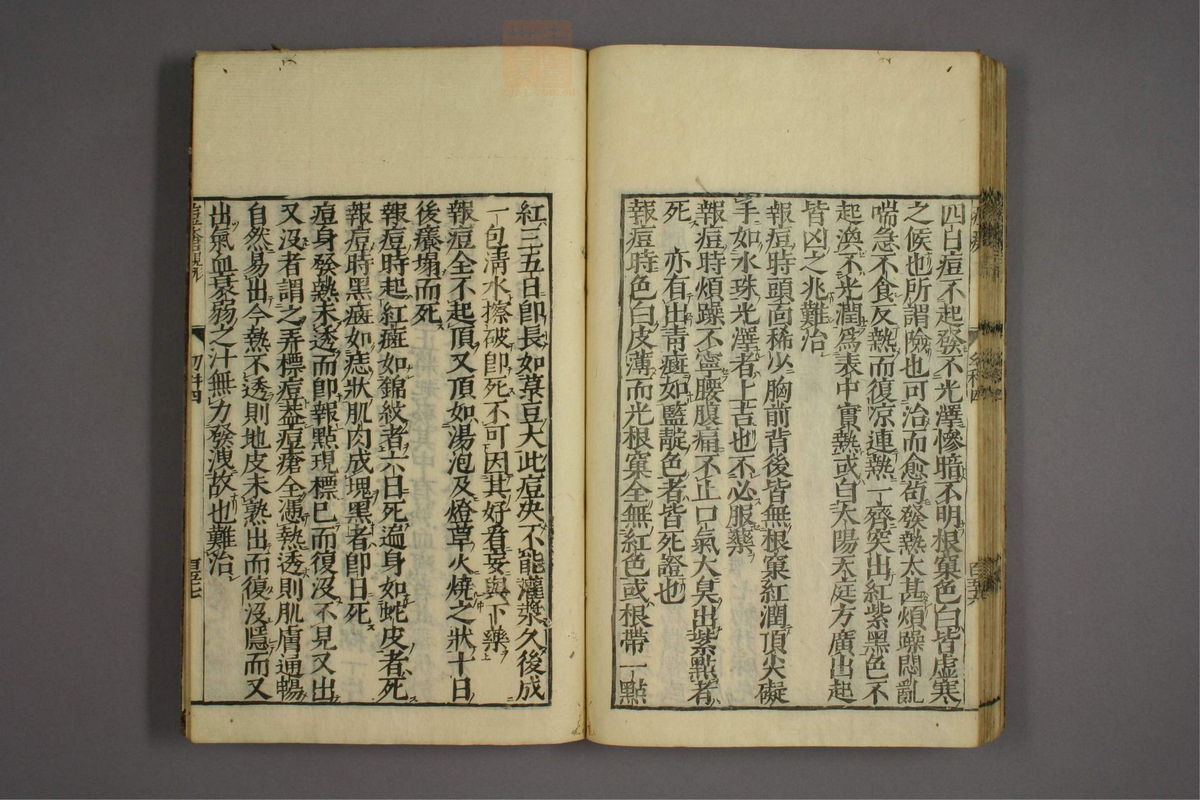 四白痘不起發不光澤慘暗不明根窠色白皆虛寒
之候也所謂險也可治而愈苟發熱太甚煩躁悶亂
喘急不食反熱而復凉連熱一齊突出紅紫黑色不
起渙不光潤爲表中實熱或白太陽天庭方廣出起
皆凶之兆難治
報痘時頭面稀少胸前背後皆無根窠紅潤頂尖礙
手如水珠光澤者上吉也不必服藥
報痘時煩躁不寧腰腹痛不止口氣大臭出紫點者
死　亦有出青癍如藍靛色者皆死證也
報痘時色白皮薄而光根窠全無紅色或根帶一點
紅三五日卽長如菉豆大此痘决不能灌漿久後成
一包清水擦破卽死不可因其好看妄與下藥
報痘全不起頂又頂如湯泡及燈草火燒之狀十日
後癢塌而死
報痘時起紅癍如錦紋者六日死遍身如蛇皮者死
報痘時黑癍如痣狀肌肉成塊黑者卽日死
痘身發熱未透而卽報點現標已而復沒不見又出
又沒者謂之弄標痘蓋痘瘡全憑熱透則肌膚通暢
自然易出今熱不透則地皮未熟出而復沒隱而又
出氣血衰弱之汁無力發洩故也難治
幼科四